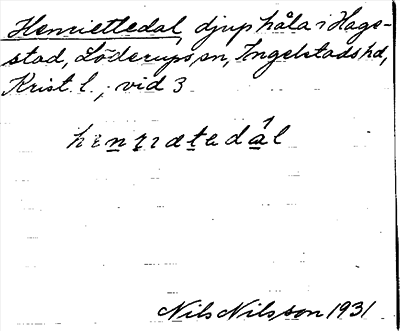 Henriettedal, djup håla i Hage-
stad, Löderups sn, Ingelstads hd,
Krist. l., vid 3
Nils Nilsson 1931